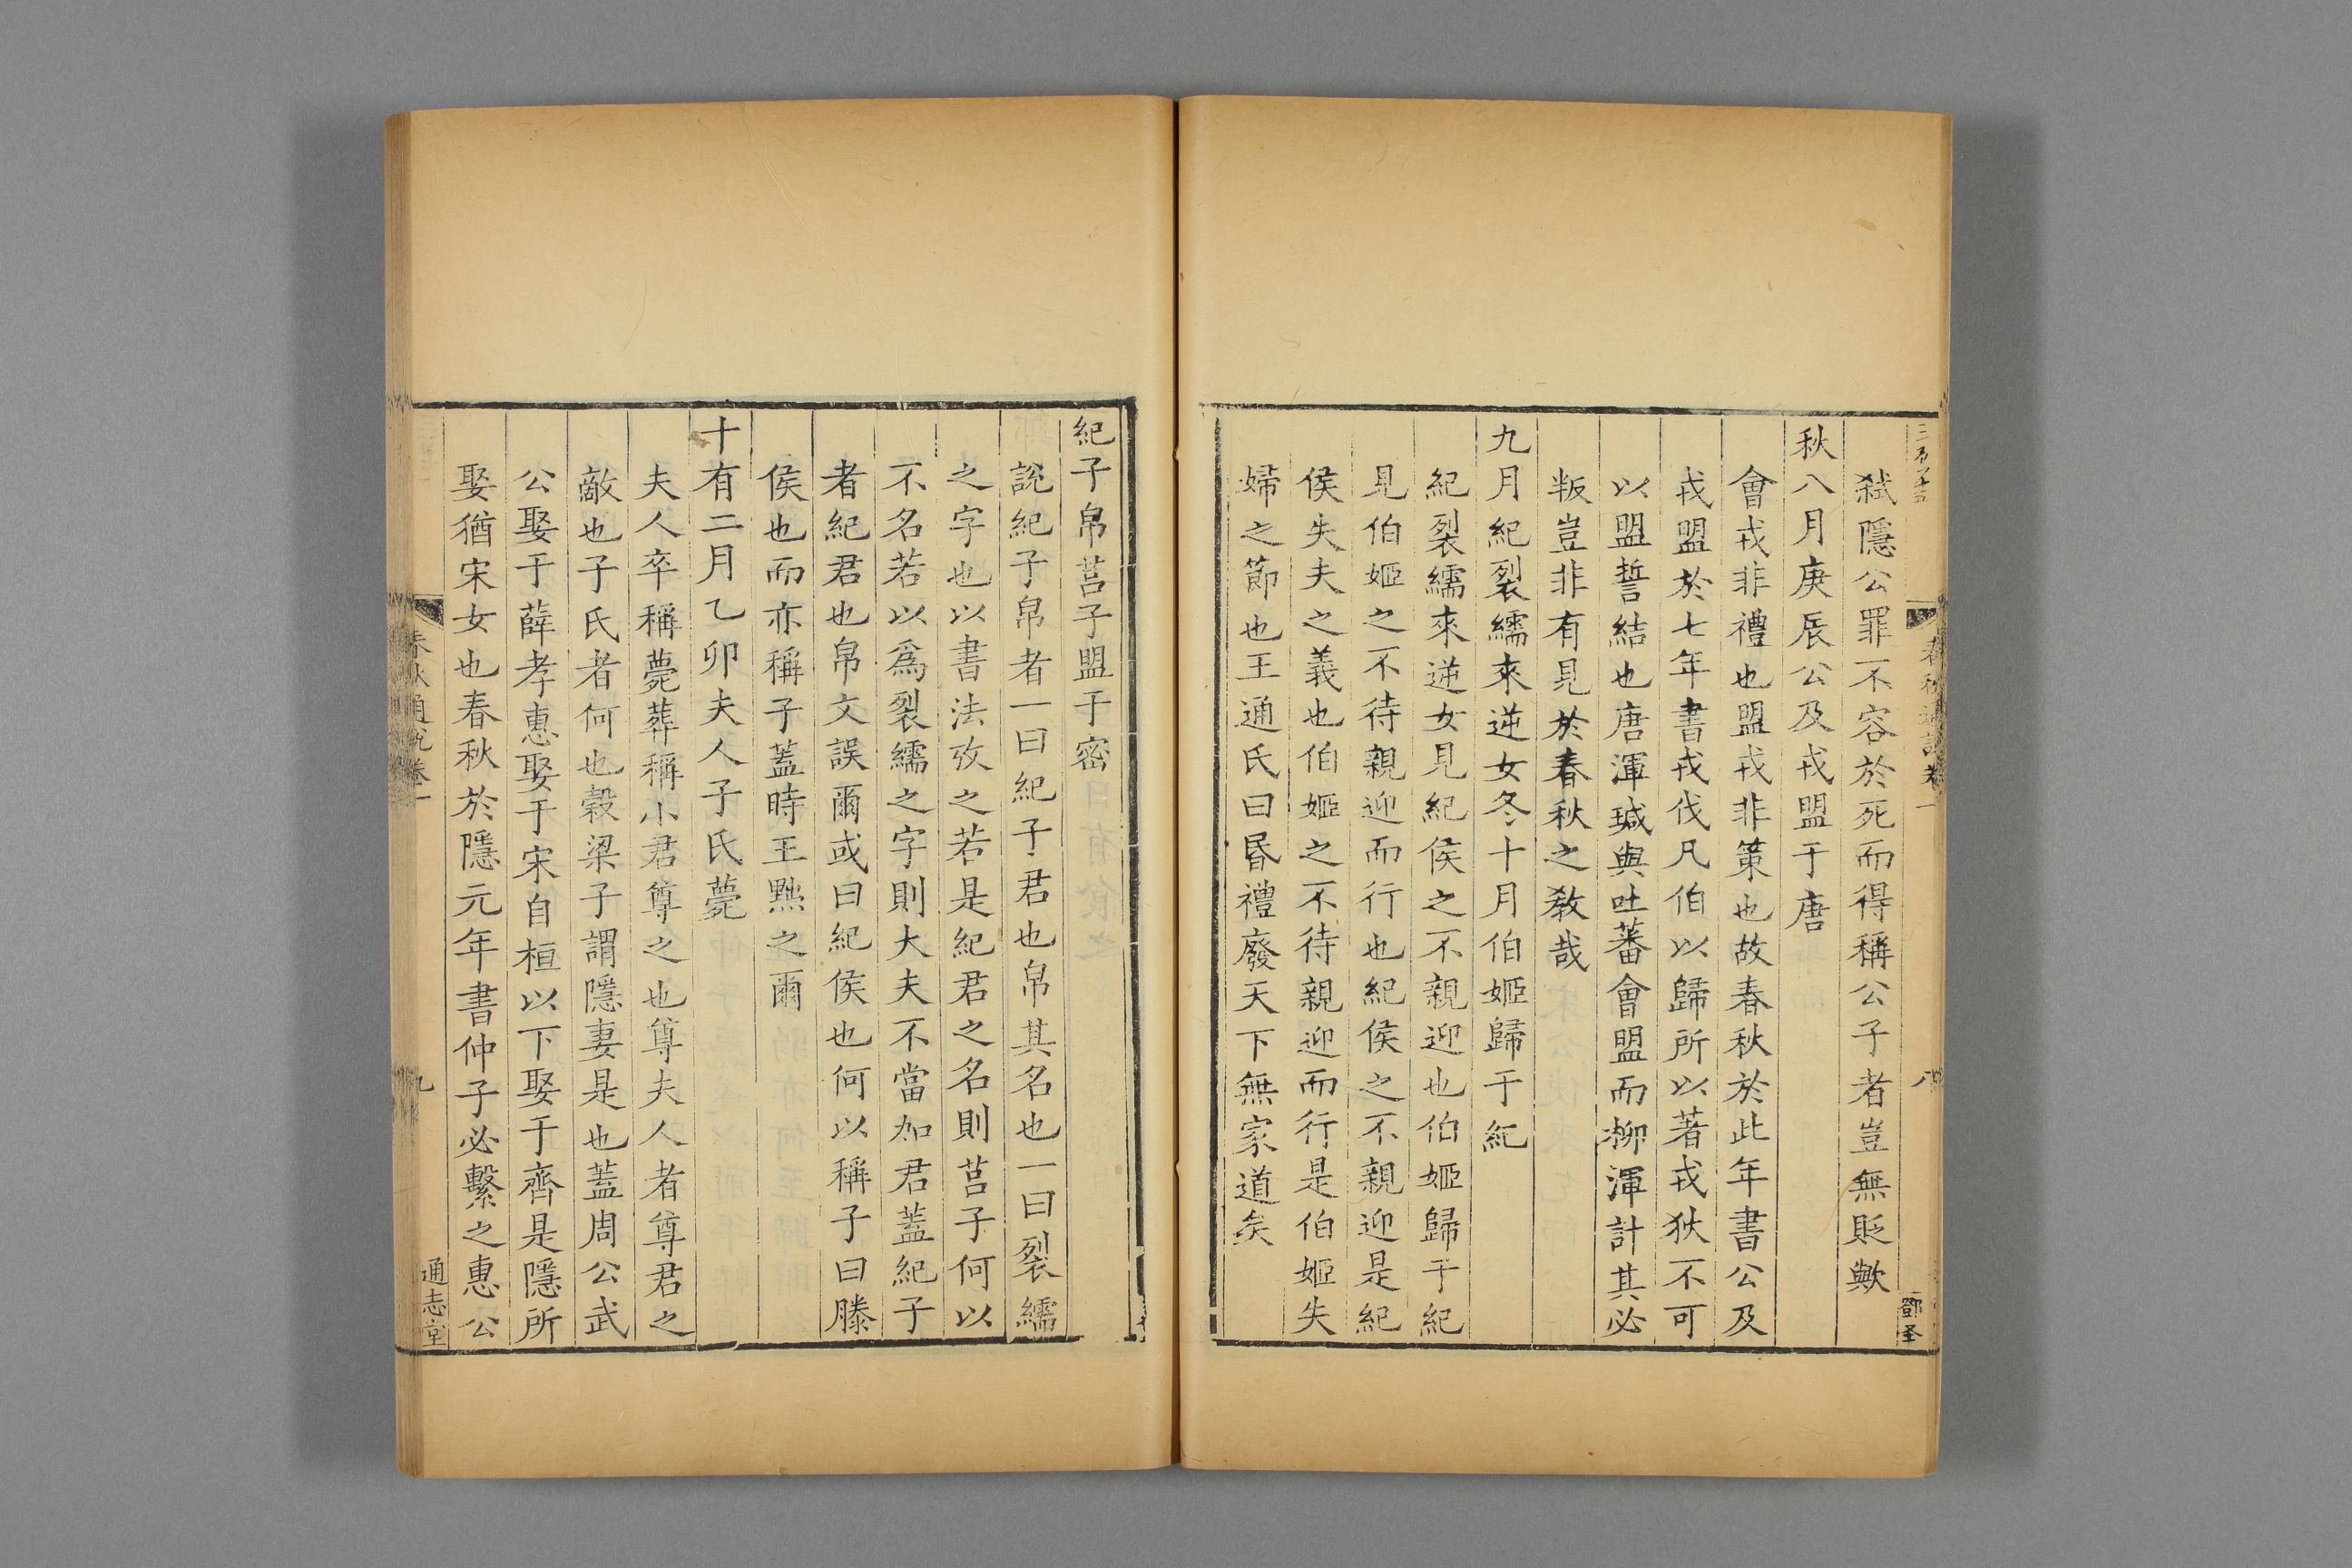 弑隱公罪不容於死而得稱公子者豈無貶歟
秋八月庚辰公及戎盟于唐
會戎非禮也盟戎非策也故春秋於此年書公及
戎盟於七年書戎伐凡伯以歸所以著戎狄不可
以盟誓結也唐渾瑊與吐蕃會盟而柳渾計其必
叛豈非有見於春秋之教哉
九月紀裂繻來逆女冬十月伯姬歸于紀
紀裂繻來逆女見紀侯之不親迎也伯姬歸于紀
見伯姬之不待親迎而行也紀侯之不親迎是紀
侯失夫之義也伯姬之不待親迎而行是伯姬失
婦之節也王通氏曰昏禮廢天下無家道矣
春秋通說卷一
八
鄧圣
紀子帛莒子盟于密
說紀子帛者一曰紀子君也帛其名也一曰裂繻
之字也以書法攷之若是紀君之名則莒子何以
不名若以爲裂繻之字則大夫不當加君蓋紀子
者紀君也帛文誤爾或曰紀侯也何以稱子曰滕
侯也而亦稱子蓋時王黜之爾
十有二月乙卯夫人子氏薨
夫人卒稱薨葬稱小君尊之也尊夫人者尊君之
敵也子氏者何也穀梁子謂隱妻是也蓋周公武
公娶于薛孝惠娶于宋自桓以下娶于齊是隱所
娶猶宋女也春秋於隱元年書仲子必繫之惠公
春秋通說卷一
九
通志堂